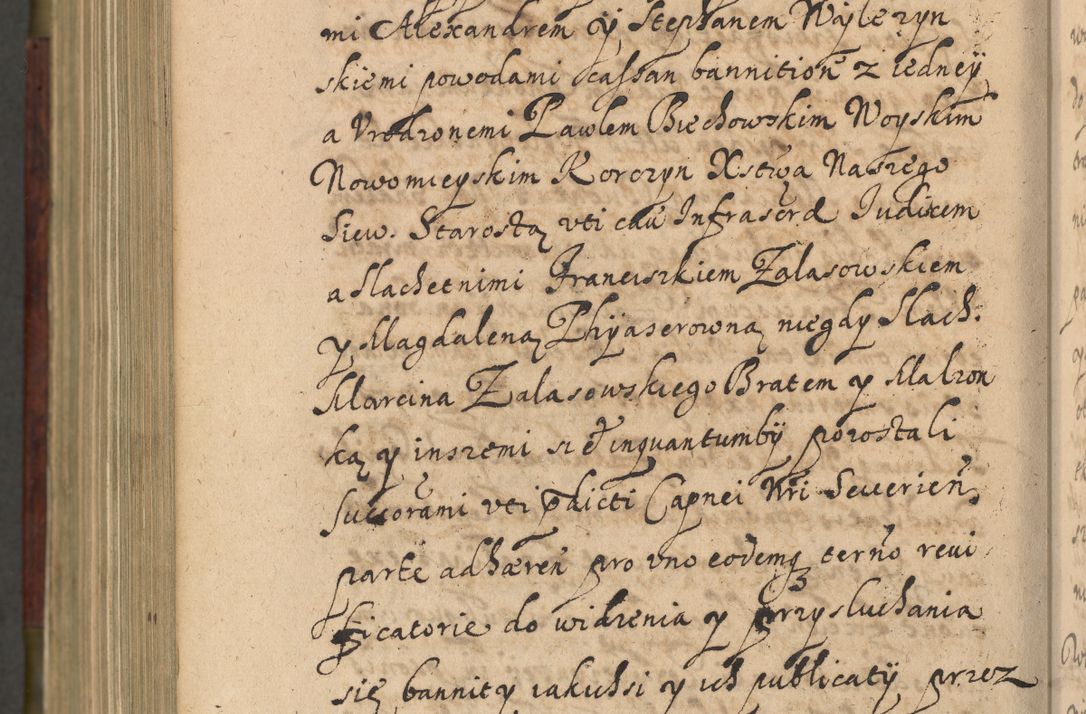 mi Alexandrem y Stephanem Wayleżyn
skiemi powodami cassan bannitioñ z iedneÿ
a Vrodzonemi Pawłem Biechowskim Woyskim
Nowomieyskim Korczyn Xstwa Naszego
Siew. Starostą vti cau Infrascrd Iudicem
a Slachetnimi Franciszkiem Zalasowskiem
y Magdaleną niegdy Slach.
Marcina Zalasowskiego Bratem y Małzon
ką y inszemi si inquantumbÿ pozostali
Succorami vti pdicti Capnei Nri Seuerień.
parte adhæreñ pro vno eodemq termo revi
ficatorie do widzenia y przysluchania
się bannity iakichsi y ich publicatÿ przez